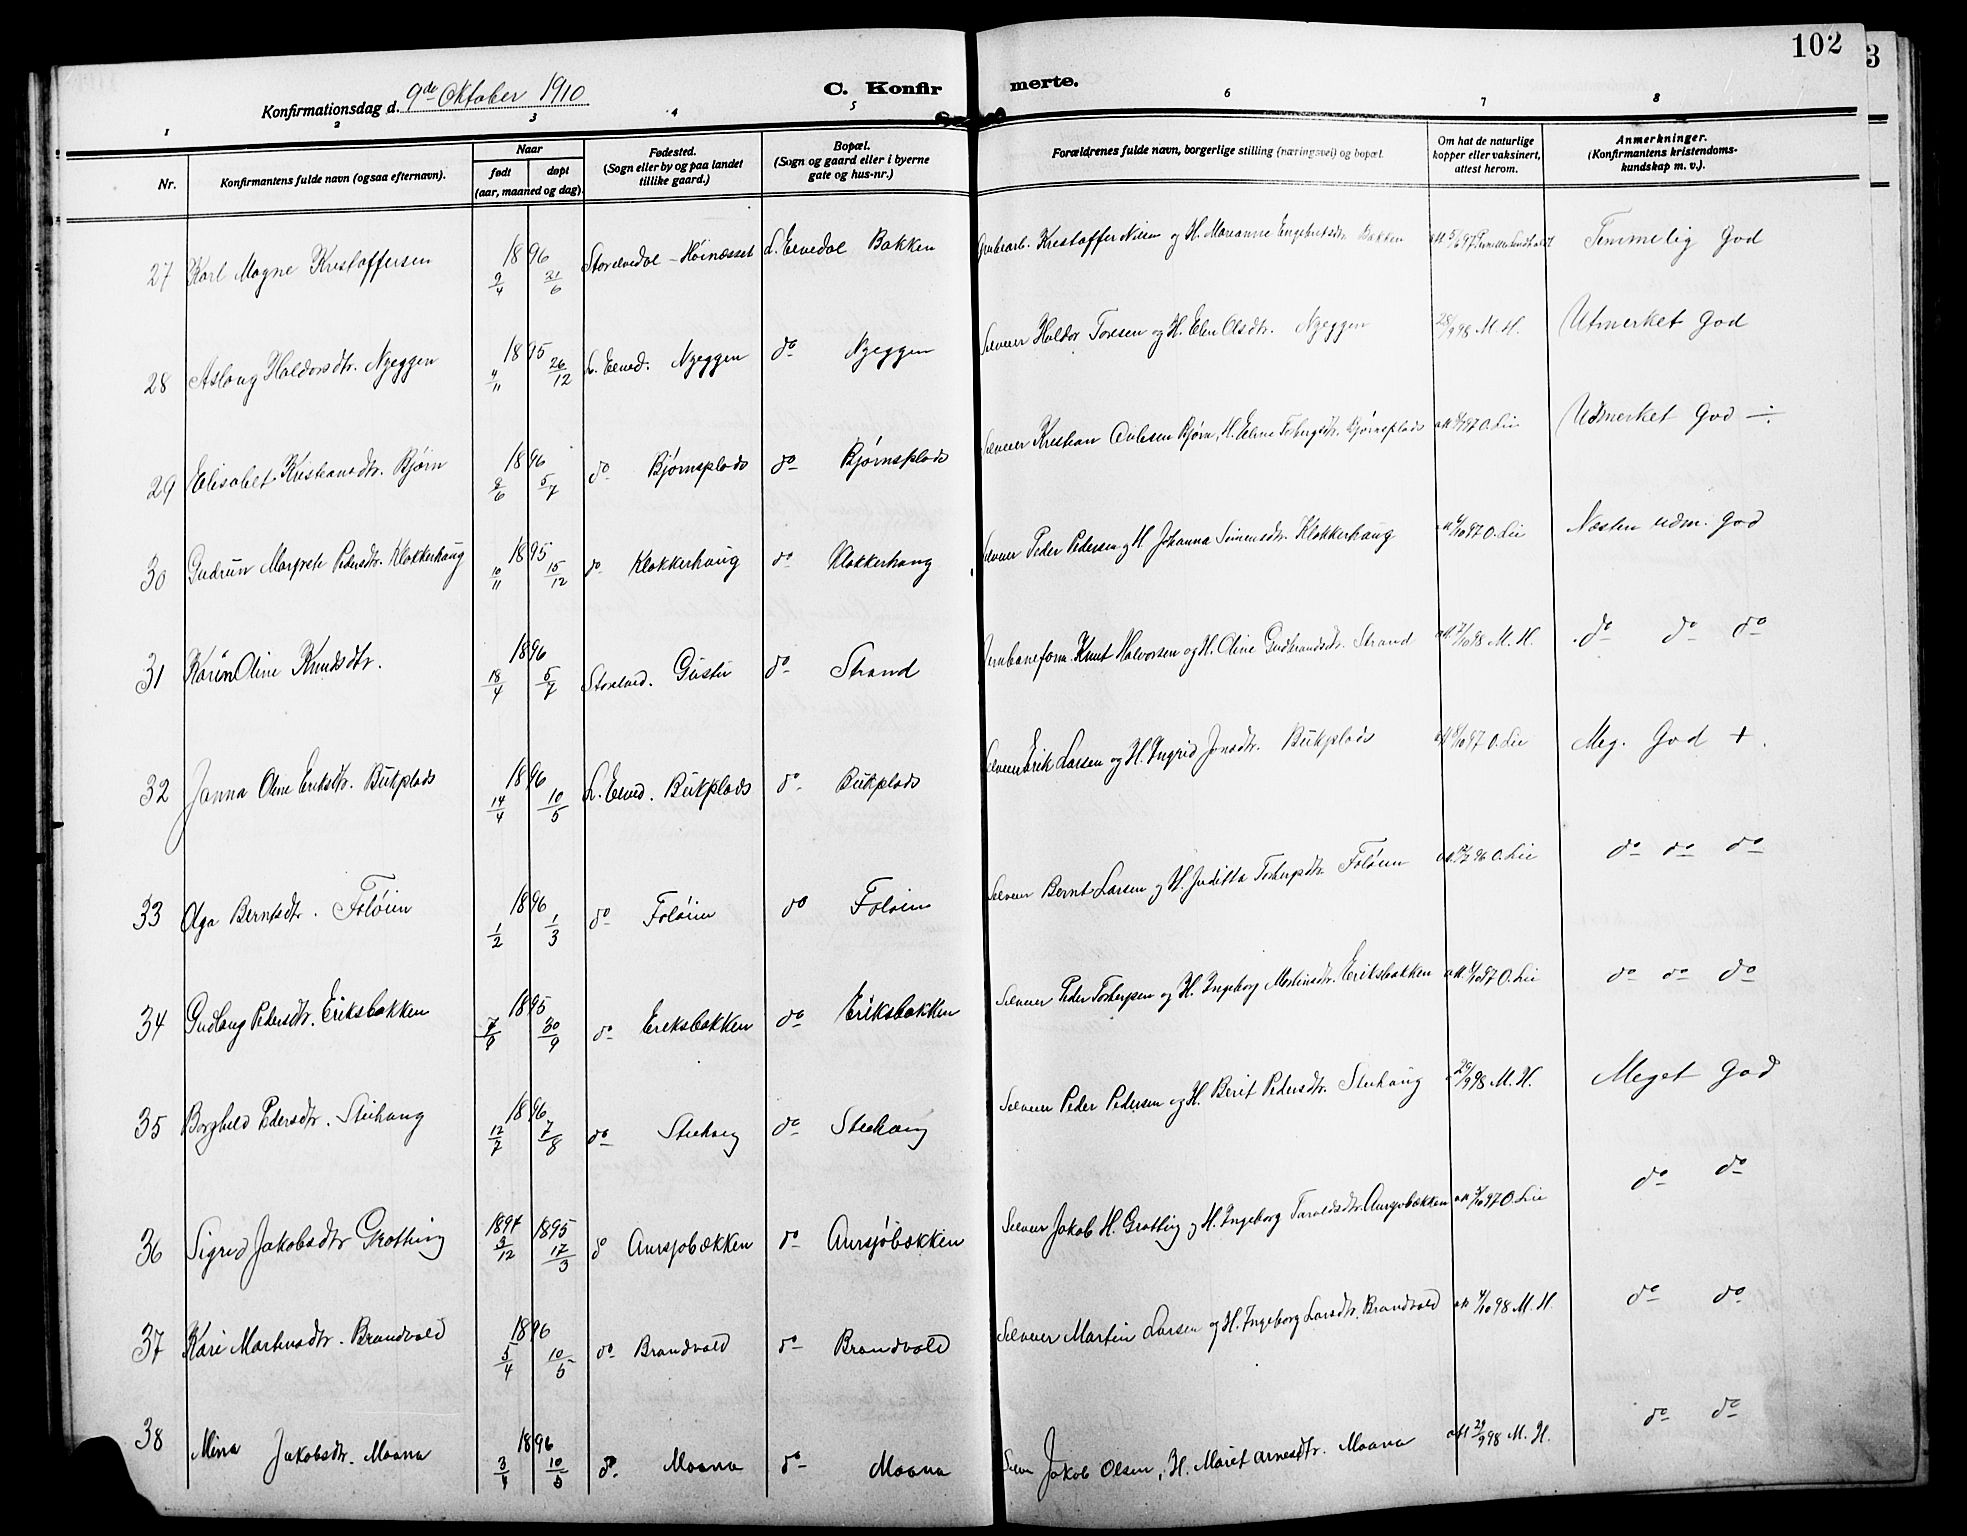 102
3
Konfirmationsdag d. 9de Oktober 1910
C. Konfirmerte.
1 2 3 4 5 6 7 8
Nr.
Konfirmantens fulde navn (ogsaa efternavn).
Naar
født døpt
(aar, maaned og dag).
Fødested.
(Sogn eller by og paa landet
tillike gaard.)
Bopæl.
(Sogn og gaard eller i byerne
gate og hus-nr.)
Forældrenes fulde navn, borgerlige stilling (næringsvei) og bopæl.
Om hat de naturlige
kopper eller vaksinert,
attest herom.
Anmerkninger.
(Konfirmantens kristendoms-
kundskap m. v.).
27 Karl Magne Kristoffersen 1896 9/4 21/6 Storelvedal - Høinesset L. Elvedal Bakken Kristoffer Nilsen og H. Marianne Engebretsdtr. Bakken Temmelig God
28 Aslaug Haldorsdtr. Nyeggen 1895 4/11 26/12 L. Elved. Nyeggen do Nyeggen Selveier Haldor Toresen og H. Elen Olsdtr. Nyeggen 28/9 98 M. H. Utmerket God
29 Elisabet Kristiansdtr. Bjørn 1896 8/6 5/7 do Bjørnsplads do Bjørnsplads Selveier Kristian Bjørn, H. Eline Bjørnsplads O. Lie Udmerket God ÷
30 Gudrun Margrete Pedersdtr. Klokkerhaug 1895 10/11 15/12 do Klokkerhaug do Klokkerhaug Selveier Peder Pedersen og H. Johanna Simensdtr. Klokkerhaug O. Lie Næsten udm. God
31 Karen Oline Knudsdtr. 1896 18/4 5/7 Storelved. Gustu do Strand Knut Halvorsen og H. Oline Gudbrandsdtr. Strand M. H. do do do
32 Janna Oline Eriksdtr. Bukplads 1896 14/4 10/5 L. Elved. Bukplads do Bukplads Selveier Erik Larsen og H. Ingrid Jonsdtr. Bukplads O. Lie Meg. God +.
33 Olga Berntsdtr. Foløien 1896 1/2 1/3 do Foløien do Foløien Selveier Bernt Larsen og H. Juditta Torbergsdtr. Foløien O. Lie do do do
34 Gudlaug Pedersdtr. Eriksbakken 1895 7/9 30/9 do Eriksbakken do Eriksbakken Selveier Peder Torbergsen og H. Ingeborg Martinsdtr. Eriksbakken O. Lie do do do
35 Borghild Pedersdtr. Steihaug 1896 12/7 7/8 do Steihaug do Steihaug Selveier Peder Pedersen og H. Berit Pedersdtr. Steihaug 29/9 98 M. H. Meget God
36 Sigrid Jakobsdtr Grøtting 1894 3/12 1895 17/3 do Aursjøbækken do Aursjøbækken Selveier Jakob H. Grøtting og H. Ingeborg Taraldsdtr. Aursjøbækken O. Lie do do
37 Kari Martinsdtr. Brandvold 1896 5/4 10/5 do Brandvold do Brandvold Selveier Martin Larsen og H. Ingeborg Larsdtr. Brandvold M. H. do do
38 Mina Jakobsdtr. Moana 1896 3/4 10/5 do Moana do Moana Jakob Olsen, H. Marit Arnesdtr. Moana att 29/9 98 M. H. do do